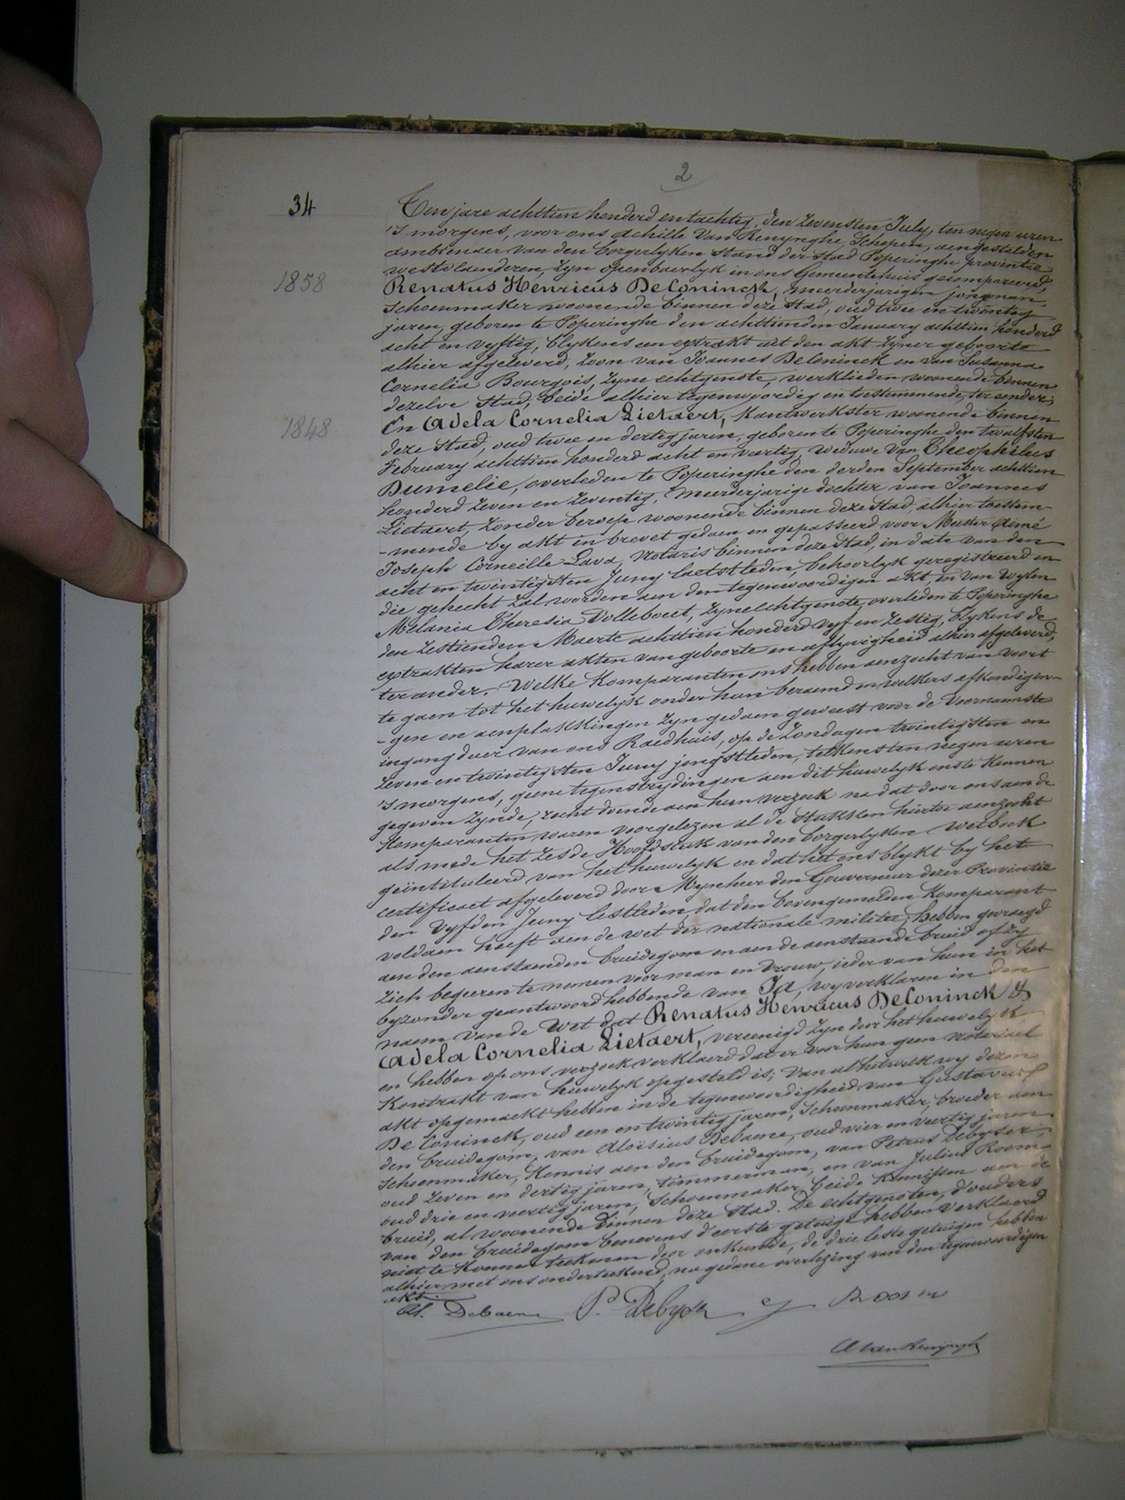 2
34
Ten jare achttien honderd en tachtig, den zevensten July, ten negen uren
's morgens, voor ons Achille Van Renynghe, Schepen, aengestelden
ambtenaer van den borgerlyken stand der stad Poperinghe provintie
westvlaenderen, zyn openbaerlyk in ons Gemeentehuis gecompareerd,
1858
Renatus Henricus DeConinck, meerderjarigen jongman,
schoenmaker woonende binnen deze stad, oud twee en twintig
jaren, geboren te Poperinghe den achttienden January achttien honderd
acht en vyftig, blykens een extrakt uit den akt zyner geboorte
alhier afgeleverd, zoon van Joannes DeConinck en van Susanna
Cornelia Bourgois, zyne echtgenote, werklieden woonende binnen
dezelve stad, beide alhier tegenwoordig en toestemmende, ter eender;
1848
En Adela Cornelia Lietaert, kantwerkster woonende binnen
deze stad, oud twee en dertig jaren, geboren te Poperinghe den twaelfsten
February achttien honderd acht en veertig, weduwe van Theophilus
Dumelie, overleden te Poperinghe den derden September achttien
honderd zeven en zeventig, meerderjarige dochter van Joannes
Lietaert, zonder beroep woonende binnen deze stad alhier toestem-
-mende by akt in brevet gedaen en gepasseerd voor Meester Aimé
Joseph Corneille Lava, Notaris binnen deze stad, in date van den
acht en twintigsten Juny laetstleden, behoorlyk geregistreerd en
die gehecht zal worden aen den tegenwoordigen akt en van wylen
Melania Theresia Dollebout, zyne echtgenote, overleden te Poperinghe
den zestienden Maerte achttien honderd vyf en zestig, blykens de
extrakten harer akten van geboorte en aflyvigheid alhier afgeleverd,
ter ander. Welke komparanten ons hebben aenzocht van voort
te gaen tot het huwelyk onder hun beraemd en welkers afkondigin-
-gen en aenplakkingen zyn gedaen geweest voor de voornaemste
ingang duer van ons Raedhuis, op de zondagen twintigsten en
zeven en twintigsten Juny jongstleden, telkensten negen uren
's morgens, geene tegenstrydingen aen dit huwelyk ons te kennen
gegeven zynde, recht doende aen hun verzoek na dat door ons aen de
komparanten waren voorgelezen al de stukken hiertoe aenzocht
als mede het zesde Hoofdstuk van den borgerlyken wetboek
geïntituleerd van het huwelyk en dat het ons blykt by het
certificaet afgeleverd door Mynheer den Gouverneur dezer Provintie
den vyfden Juny lestleden, dat den bovengemelden komparant
voldaen heeft aen de wet der nationale militie, hebben gevraegd
aen den aenstaenden bruidegom en aen de aenstaende bruid of zy
zich begeeren te nemen voor man en vrouw, ieder van hun in het
byzonder geantwoord hebbende van Ja, wy verklaren in den
naem van de Wet dat Renatus Henricus DeConinck &
Adela Cornelia Lietaert, vereenigd zyn door het huwelyk
en hebben op ons verzoek verklaerd dat er voor hun geen notariael
kontrakt van huwelyk opgesteld is; van al hetwelk wy dezen
akt opgemaekt hebben in de tegenwoordigheid van Gustavus
DeConinck, oud een en twintig jaren, schoenmaker, broeder aen
den bruidegom, van Aloïsius Debaene, oud vier en veertig jaren
schoenmaker, kennis aen den bruidegom, van Petrus Debyser,
oud zeven en dertig jaren, timmerman, en van Julius Room-
oud drie en veertig jaren, schoenmaker, beide kennissen aen de
bruid, al woonende binnen deze stad. De echtgenoten, d'ouders
van den bruidegom benevens d'eerste getuige hebben verklaerd
niet te konnen teekenen door onkunde, de drie leste getuigen hebben
alhier met ons onderteekend, na gedane overlezing van den tegenwoordigen
akt.
Al. Debaene P. Debyser
A Van Renynghe